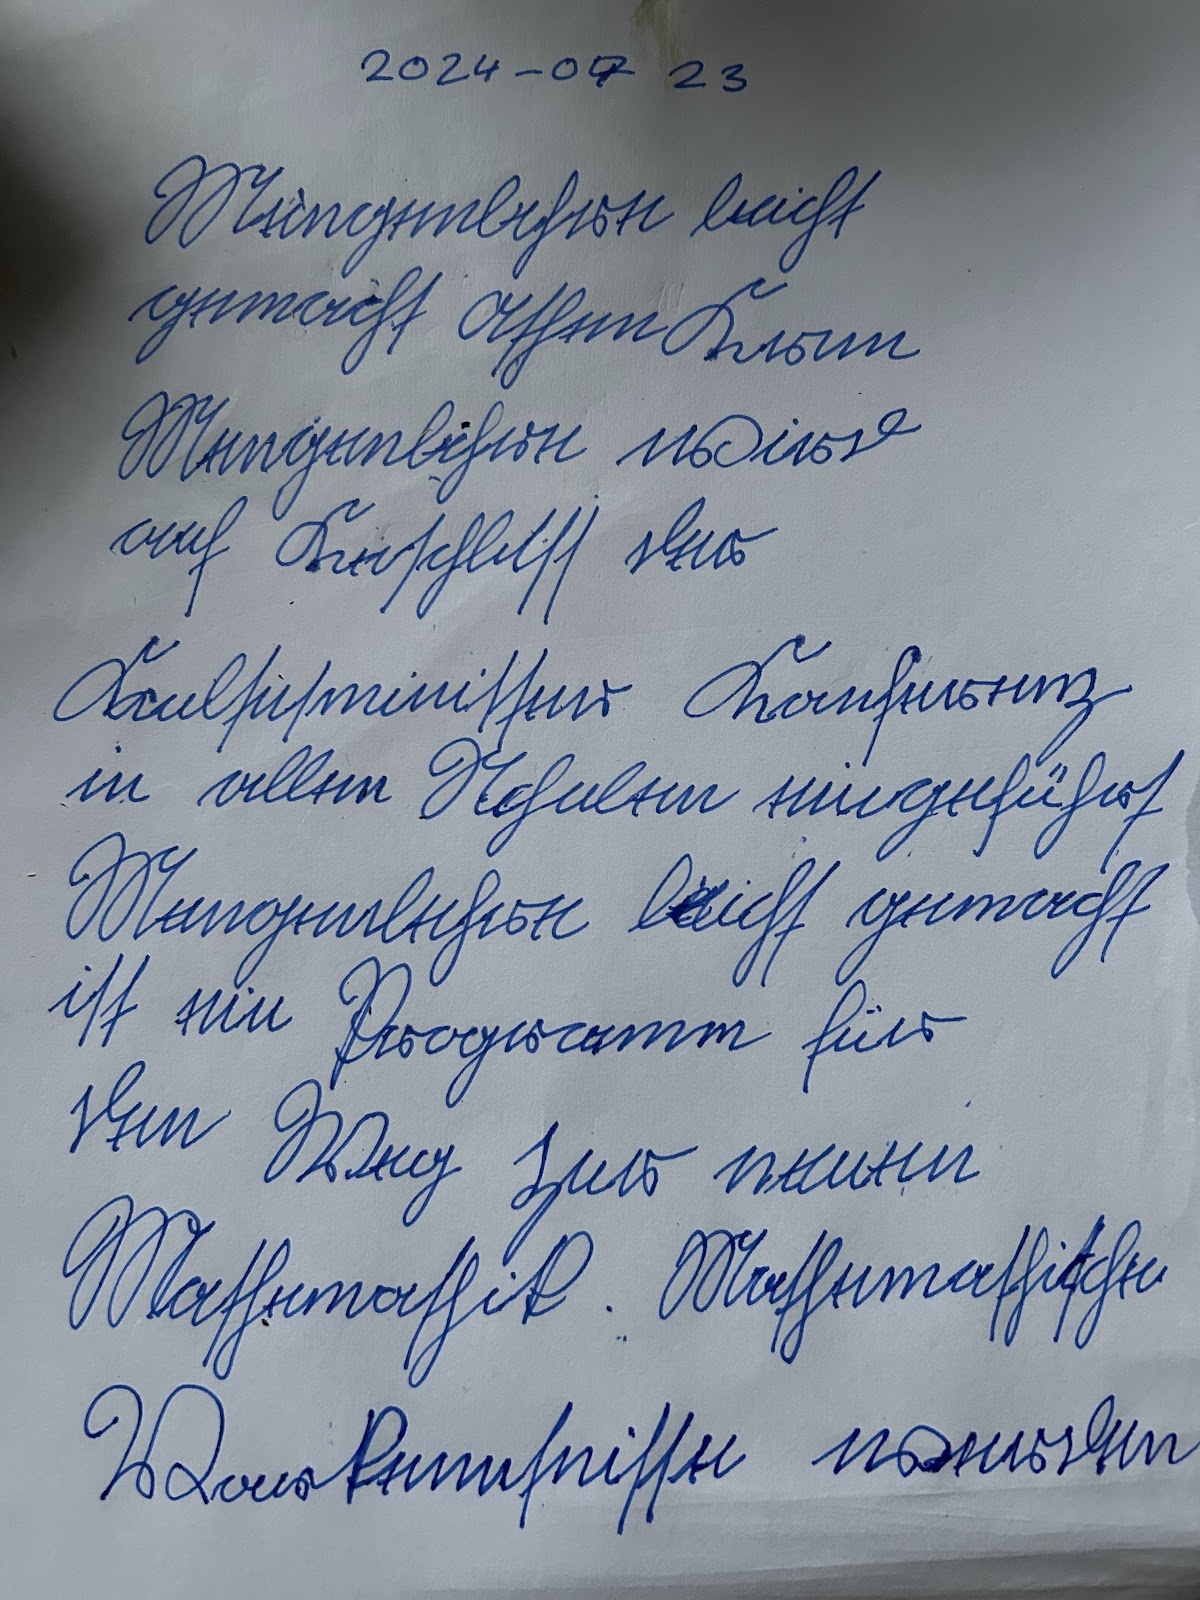 2024-07 23
Mengenlehre leicht
gemacht Athen Kreun
Mengenlehre wird
auf Beschluss der
Kultusminister Konferenz
in allen Schulen eingeführt
Mengenlehre leicht gemacht
ist ein Programm für
den Weg zur neuen
Mathematik. Mathematische
Vorkenntnisse werden